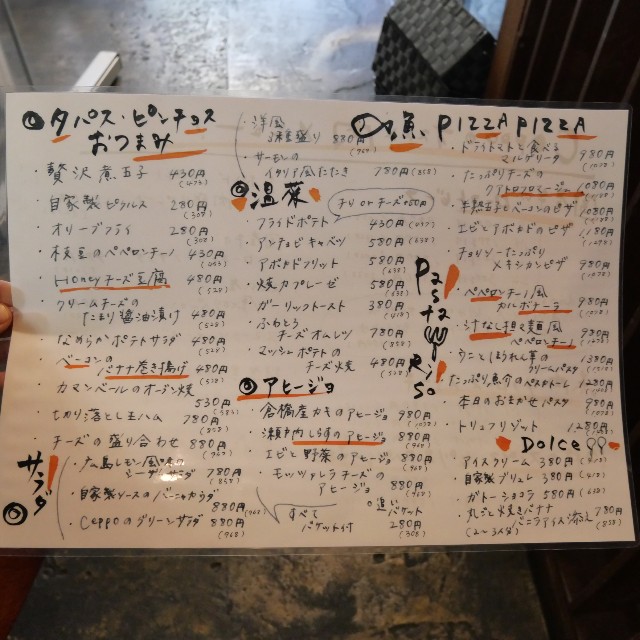 タパス・ピンチョス
おつまみ
・贅沢煮玉子 430円
(473)
・自家製ピクルス 280円
(308)
・オリーブフライ 280円
(308)
・枝豆のペペロンチーノ 430円
・Honeyチーズ豆腐 480円
(528)
・クリームチーズの
たまり醤油漬け 480円
(528)
・なめらかポテトサラダ 480円
(528)
・ベーコンの
バナナ巻き揚げ 480円
(528)
・カマンベールのオーブン焼
530円
(583)
・切り落とし生ハム 780円
(858)
・チーズの盛り合わせ 880円
(968)
サラダ
・広島レモン風味の
シーザーサラダ 780円
(858)
・自家製ソースのバーニャカウダ
880円
(968)
・Ceppoのグリーンサラダ 880円
(968)
魚
・洋風
880円
(968)
・サーモンの
イタリア風たたき 780円
(858)
温菜
チリ or チーズ
・フライドポテト 430円
・アンチョビキャベツ 580円
(638)
・アボカドフリット 580円
(638)
・焼カプレーゼ 580円
(638)
・ガーリックトースト 380円
(418)
・ふわとろ
チーズオムレツ 780円
(858)
・マッシュポテトの
チーズ焼 480円
(528)
アヒージョ
・倉橋産カキのアヒージョ 980円
(1078)
・瀬戸内しらすのアヒージョ 880円
(968)
・エビと野菜のアヒージョ 880円
(968)
・モッツァレラチーズの
アヒージョ 880円
(968)
すべて
バケット付
追いバケット
280円
(308)
PIZZA PIZZA
・ドライトマトと食べる
マルゲリータ 980円
(1078)
・たっぷりチーズの
クアトロフロマージュ 1080円
・半熟玉子とベーコンのピザ 1080円
・エビとアボカドのピザ 1080円
・チョリソーたっぷり
メキシカンピザ 980円
(1078)
Pasta Riso
・ペペロンチーノ風
カルボナーラ 980円
(1078)
・汁なし担々麺風
ペペロンチーノ 980円
(1078)
・うにとほうれん草の
クリームパスタ 1380円
・たっぷり魚介のペスカトーレ 1280円
・本日のおまかせパスタ 980円
(1078)
・トリュフリゾット 1280円
Dolce
・アイスクリーム 380円
(418)
・自家製ブリュレ 380円
(418)
・ガトーショコラ 580円
(638)
・丸ごと焼きバナナ
バニラアイス添え 780円
(858)
(2〜3人分)